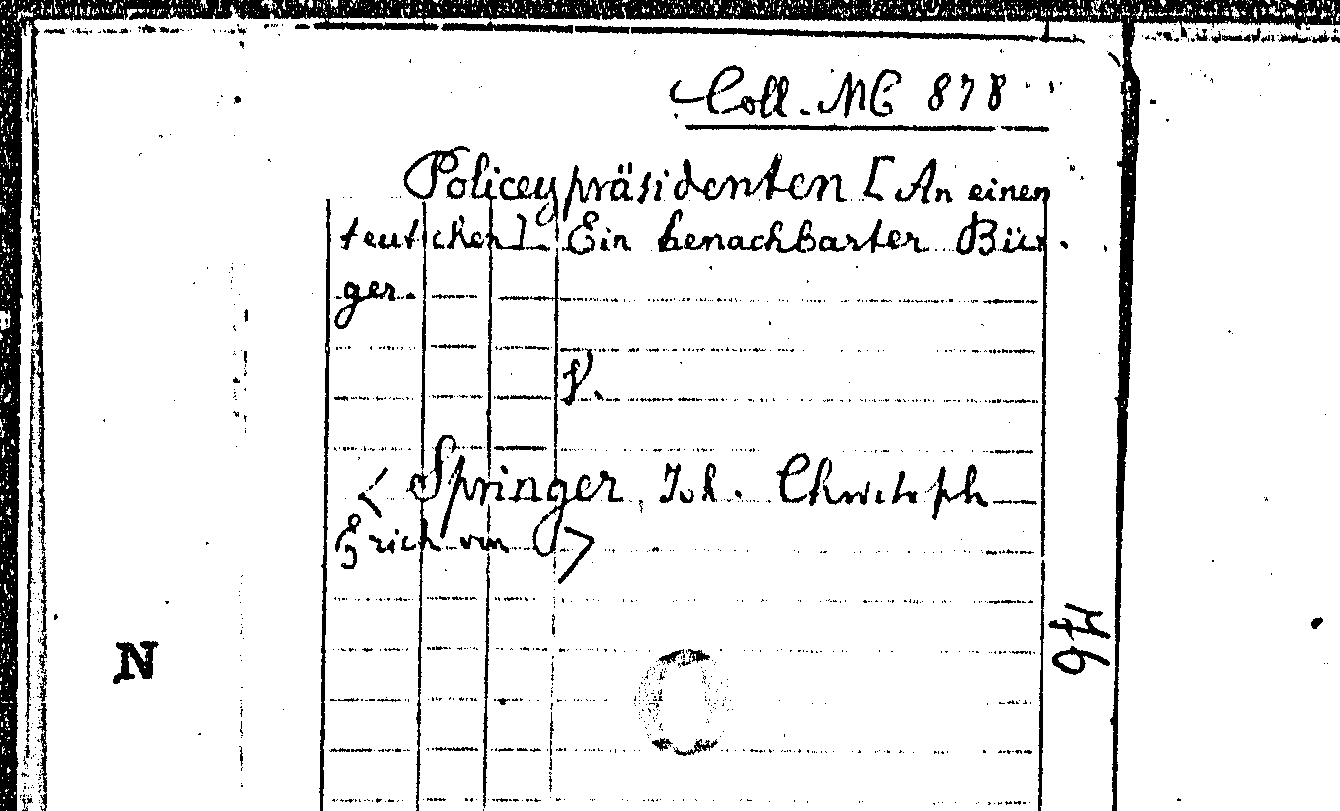 Coll. MC 878
Policeypräsidenten [An einen
teutschen]. Ein benachbarter Bür-
ger.
s.
< Springer, Joh. Christoph
Erich von >
N
46